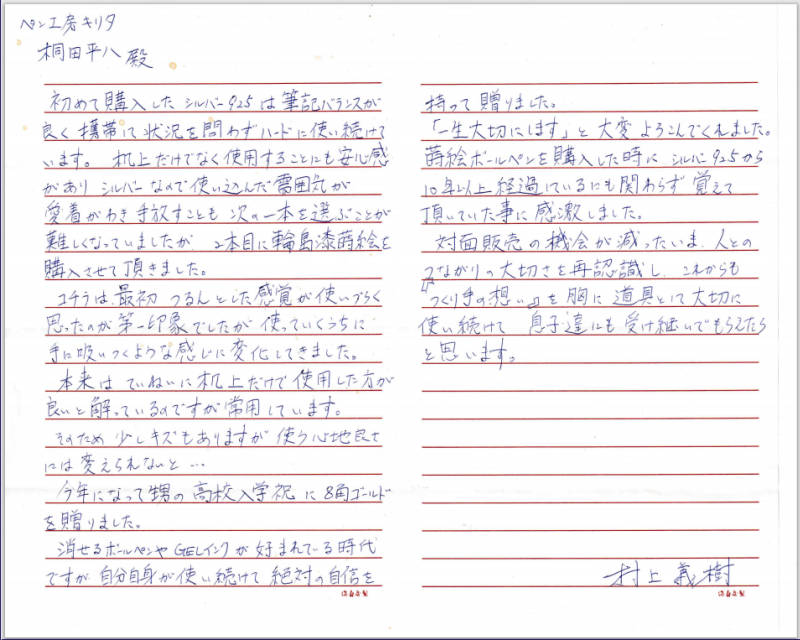 ペン工房キリタ
桐田平八 殿
初めて購入した シルバー925 は 筆記バランスが
良く 携帯して 状況を問わずハードに使い続けて
います。 机上だけでなく使用することにも安心感
があり シルバーなので使い込んだ雰囲気が
愛着がわき 手放すことも 次の一本を選ぶことが
難しくなっていましたが、2本目に輪島漆蒔絵を
購入させて頂きました。
コチラは、最初 つるんとした感覚が使いづらく
思ったのが第一印象でしたが 使っていくうちに
手に吸いつくような感じに変化してきました。
本来は ていねいに机上だけで使用した方が
良いと解っているのですが常用しています。
そのため 少しキズもありますが 使う心地良さ
には変えられないと…
今年になって甥の高校入学祝に8角ゴールド
を贈りました。
消せるボールペンや GELインクが好まれている時代
ですが 自分自身が使い続けて 絶対の自信を
持って贈りました。
「一生大切にします」と大変よろこんでくれました。
蒔絵ボールペンを購入した時に シルバー925から
10年以上経過しているにも関わらず 覚えて
頂いていた事に感激しました。
対面販売の機会が減ったいま、人との
つながりの大切さを再認識し、これからも
『つくり手の想い』を胸に 道具として大切に
使い続けて 息子達にも受け継いでもらえたら
と思います。
村上義樹